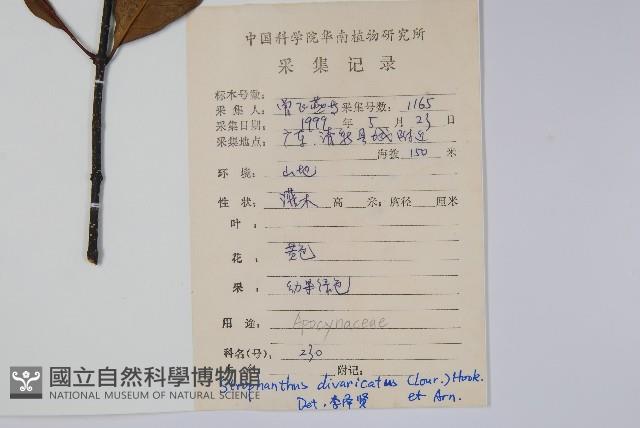 中国科学院华南植物研究所
采集记录
标本号数:
采集人: 曾飞燕 采集号数: 1165
采集日期: 1999 年 5 月 23 日
采集地点: 广东.清新县城附近
海拔 150 米
环境: 山地
性状: 灌木 高 米; 胸径 厘米
叶:
花: 黄色
果: 幼果绿色
用途: Apocynaceae
科名(号): 230
附记:
divaricatus (Lour.) Hook.
Det. 李泽贤 et Arn.
國立自然科學博物館
NATIONAL MUSEUM OF NATURAL SCIENCE